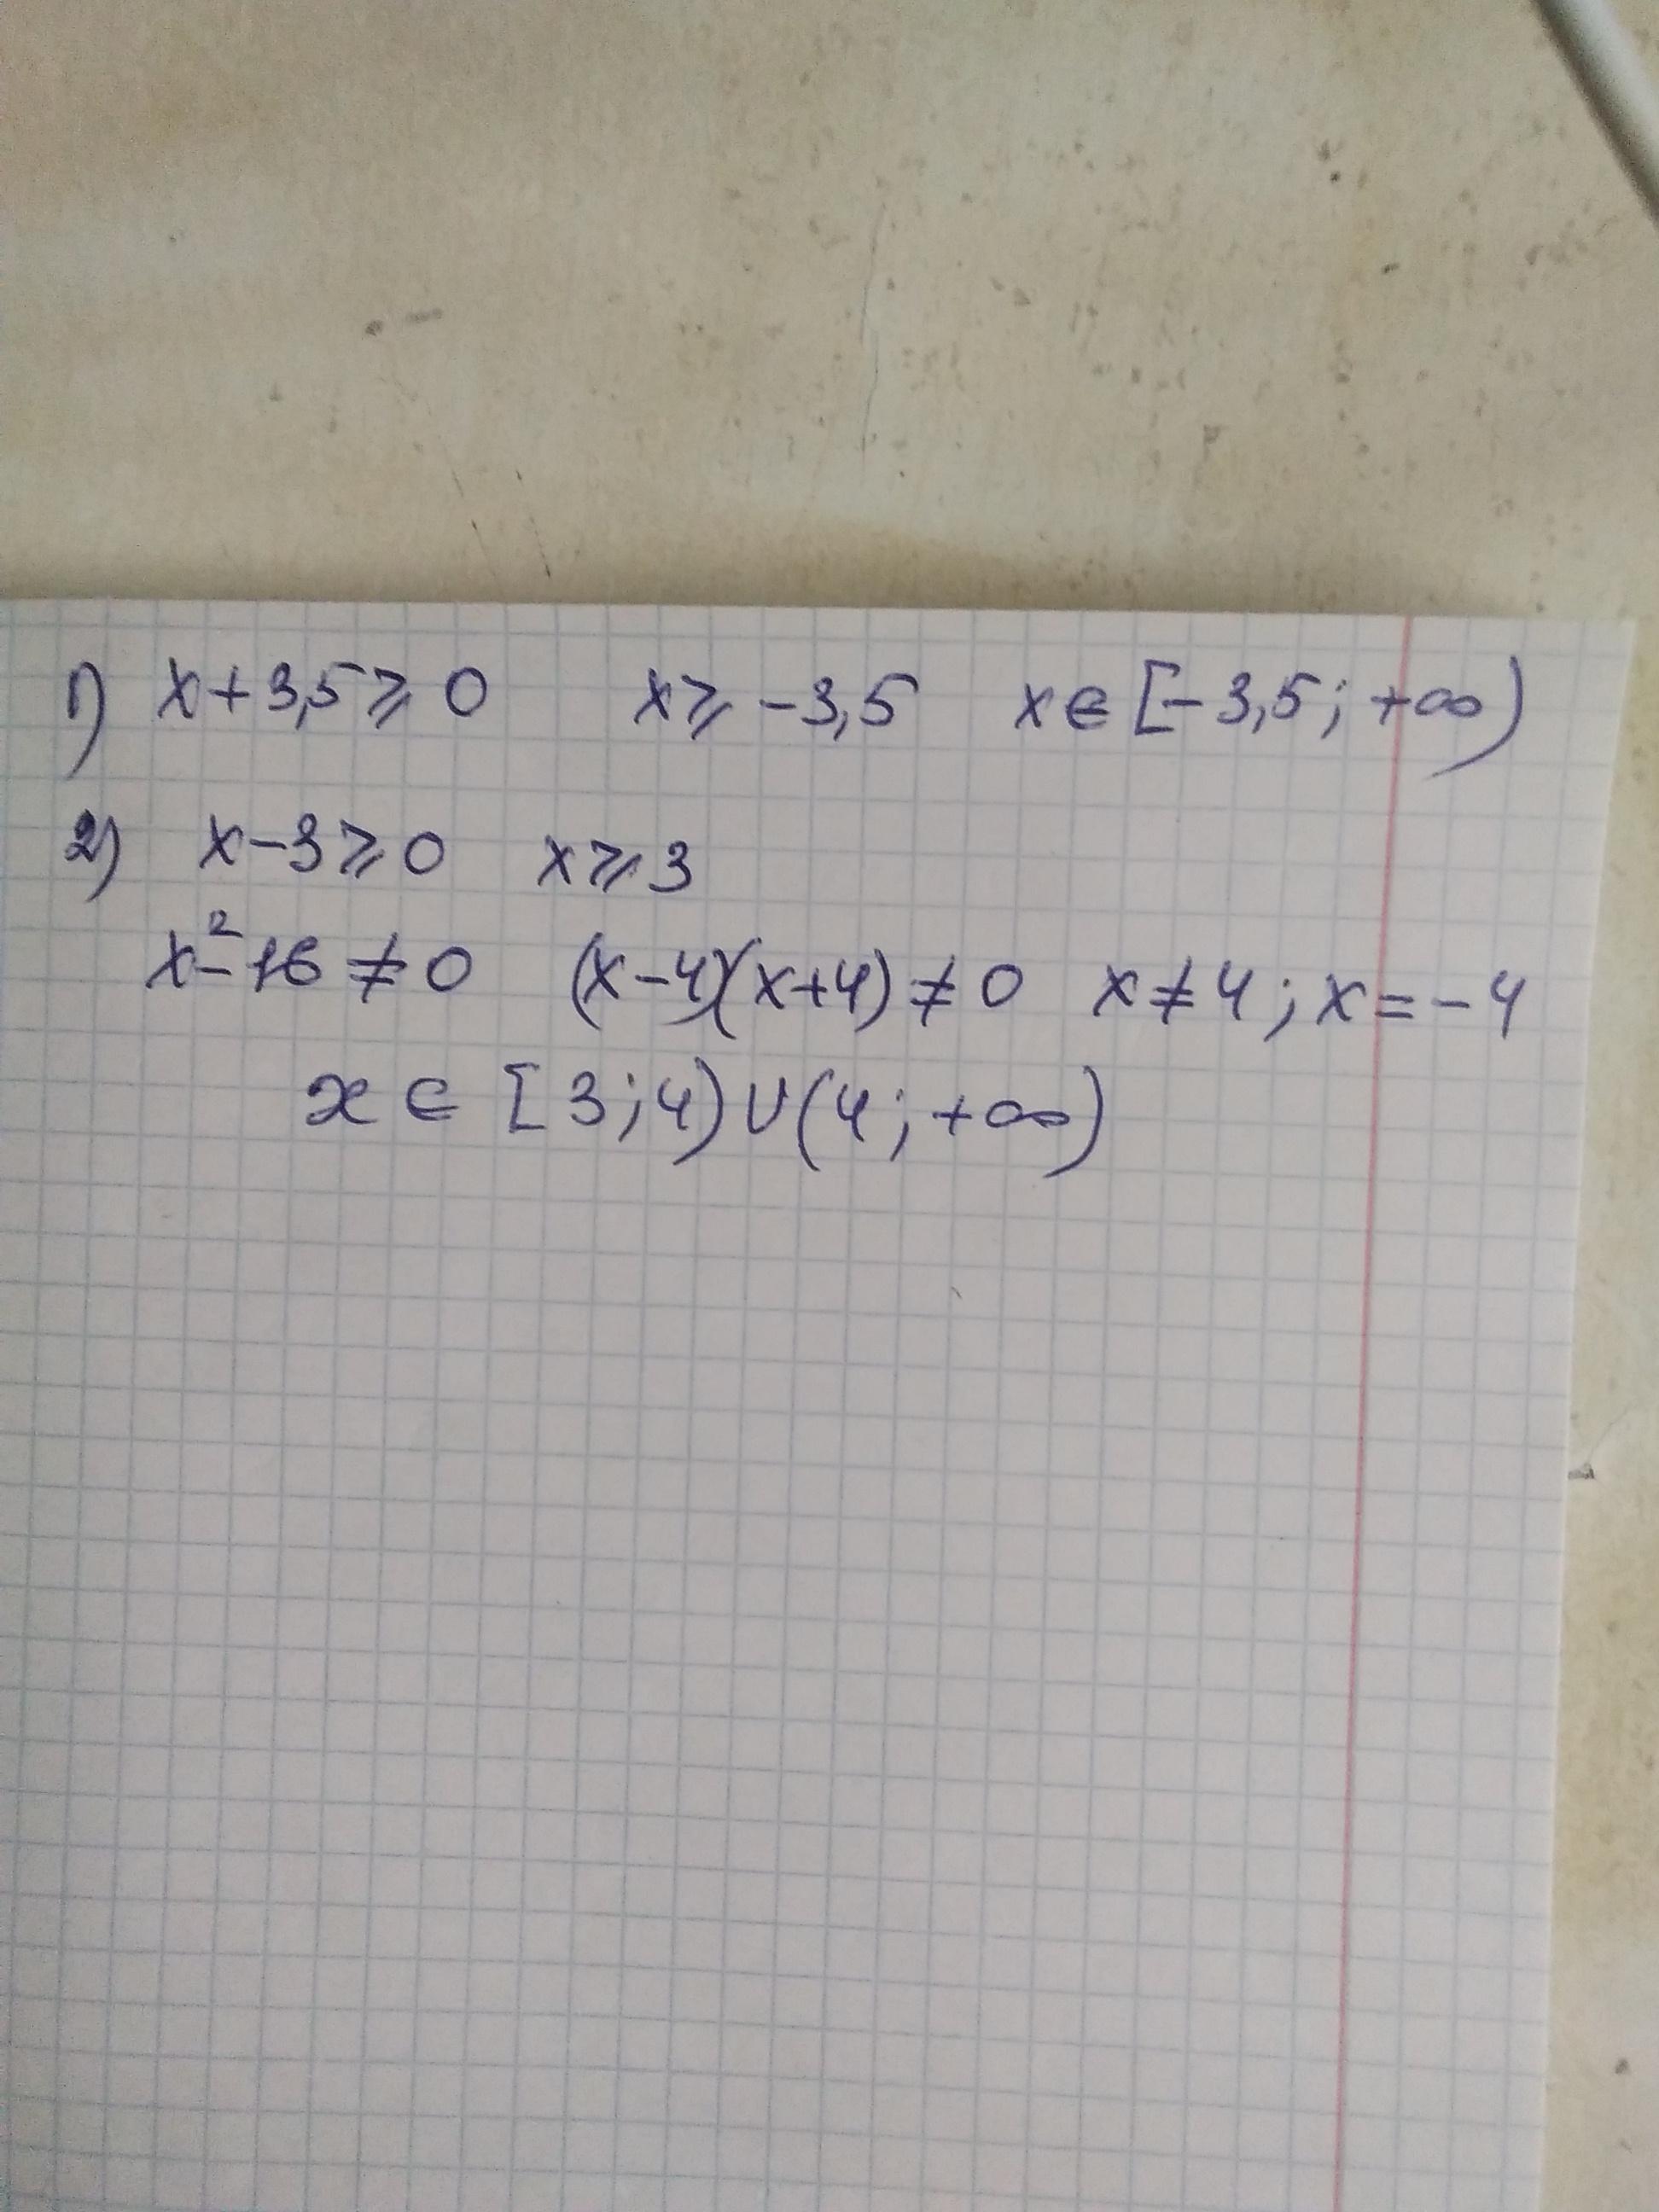 1) x+3,5⩾0 x⩾-3,5 x∈[-3,5;+∞)
2) x-3⩾0 x⩾3
x²-16≠0 (x-4)(x+4)≠0 x≠4; x=-4
x∈[3;4)∪(4;+∞)